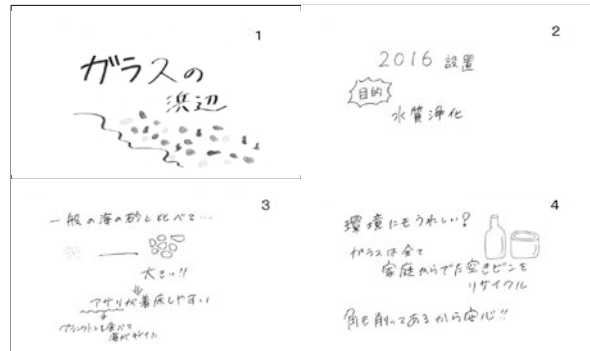 1
ガラスの
浜辺
2
2016 設置
目的
水質浄化
3
一般の海の砂と比べて…
大きい!!
アサリが着床しやすい
プランクトンを食べて
海がキレイに
4
環境にもうれしい?
ガラスは全て
家庭からでた空きビンを
リサイクル
角も削ってあるから安心!!